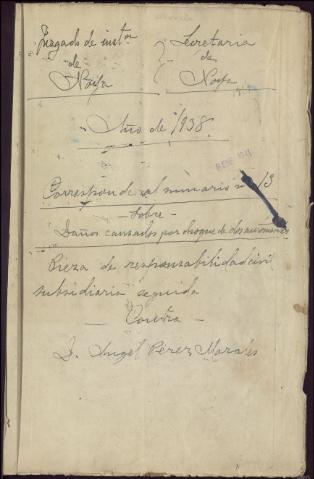 Juzgado de instón
de
Noya
Secretaria
de
Noya
Año de 1938.
ENE 1941
Corresponde al sumario nº 13
- sobre -
Daños causados por choque de dos automoviles
Pieza de responsabilidad civil
subsidiaria seguida
- Contra -
D. Angel Pérez Morales